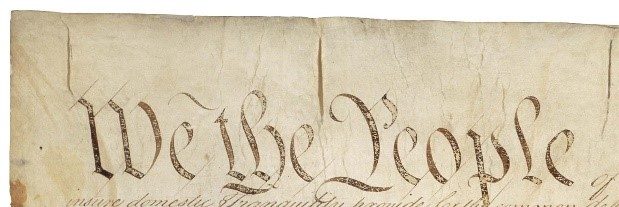 We the People of
insure domestic Tranquility, provide for the common